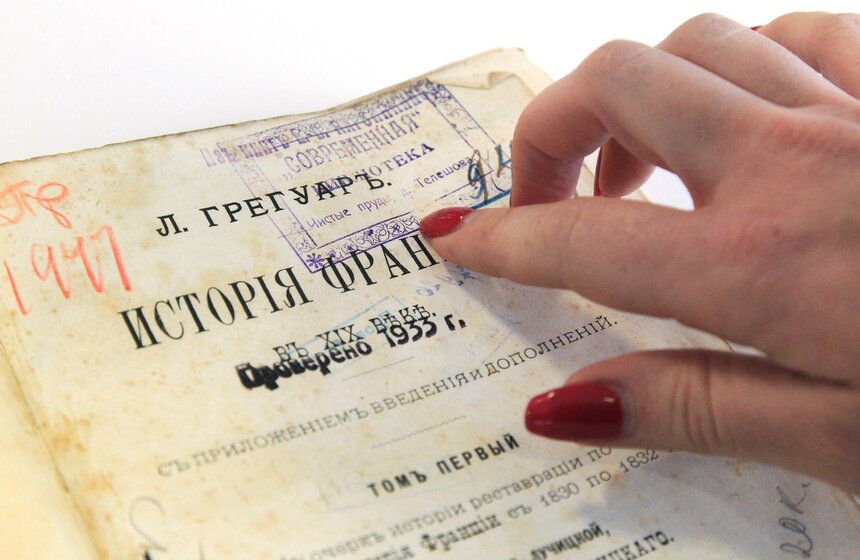 „СОВРЕМЕННАЯ"
БИБЛИОТЕКА
Чистые пруды, д. Телешова
Л. ГРЕГУАРЪ.
1947
ИСТОРІЯ ФРАН
ВЪ XIX ВѢКѢ.
Проверено 1933 г.
СЪ ПРИЛОЖЕНІЕМЪ ВВЕДЕНІЯ И ДОПОЛНЕНІЙ.
ТОМЪ ПЕРВЫЙ
очеркъ исторіи реставраціи по
Франціи съ 1830 по 1832 г
лучицкой,
ицкаго.